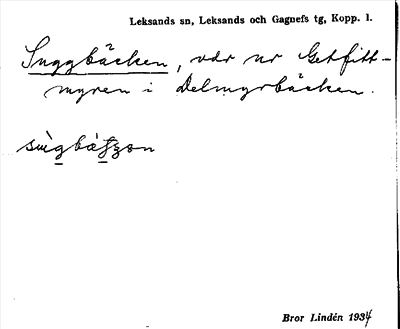 Leksands sn, Leksands och Gagnefs tg, Kopp. l.
Suggbäcken, vdr nr Getfitt-
myren i Delmyrbäcken.
Bror Lindén 1934